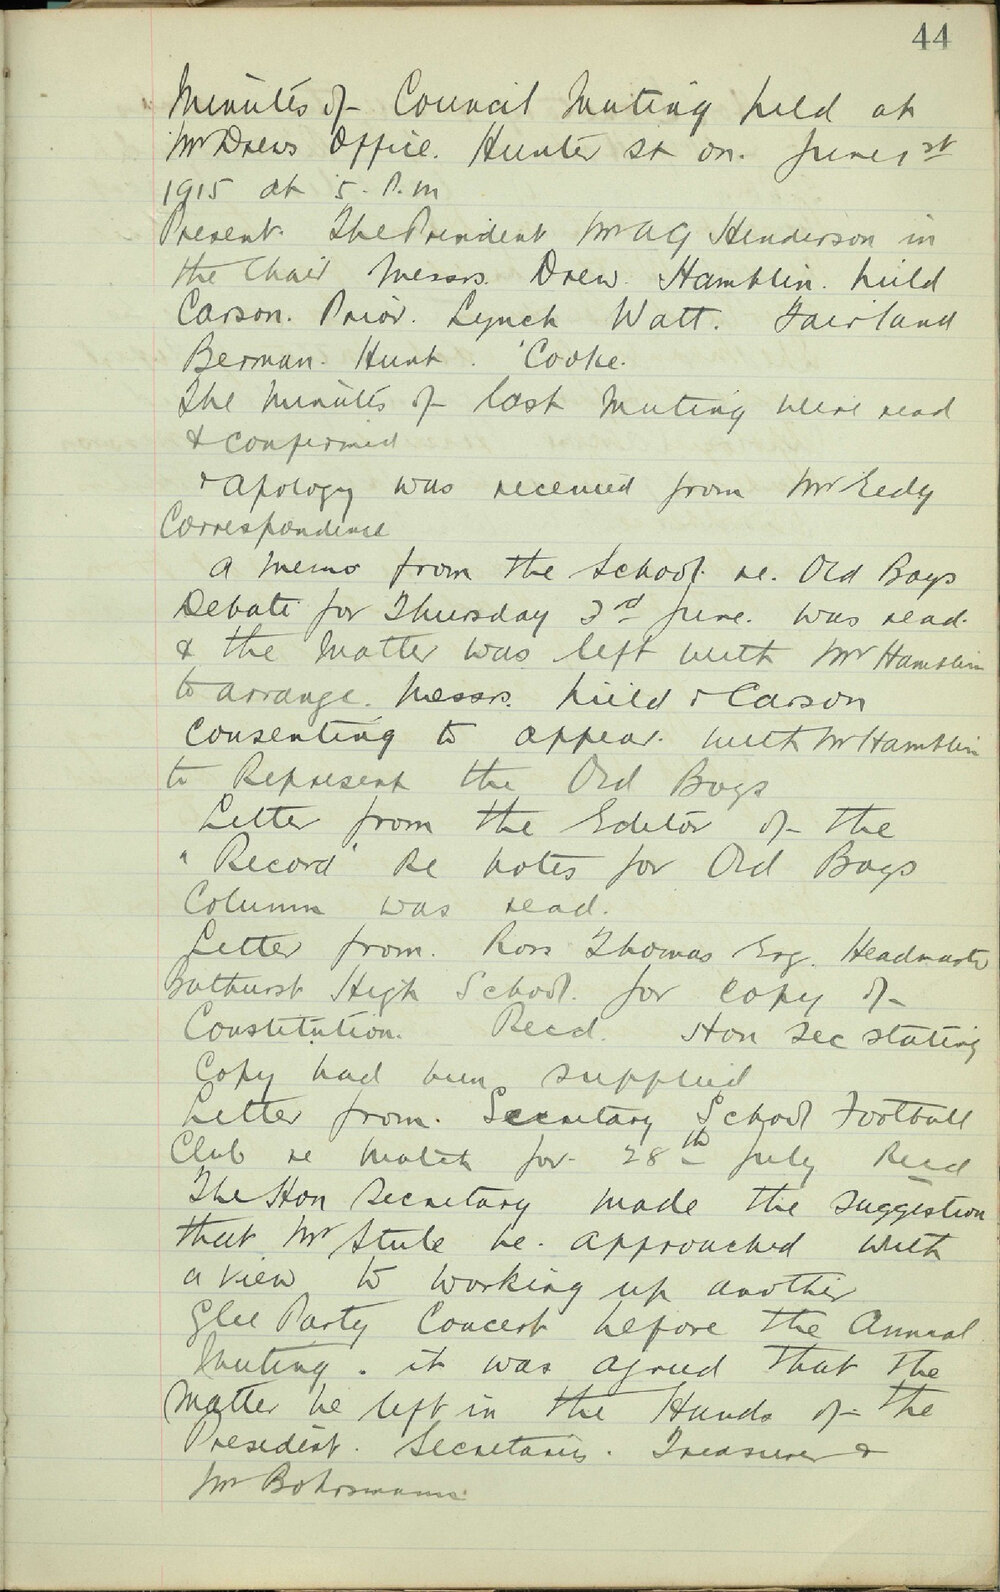 44
Minutes of Council Meeting held at
Mr Drews Office. Hunter St on. June 1st
1915 at 5. P.m
Present. The President Mr A G Henderson in
the Chair Messrs. Drew. Hamblin. Field
Carson. Prior. Lynch Watt. Fairland
Berman. Hunt. Cooke.
The Minutes of last Meeting were read
& confirmed
Apology was received from Mr Eedy
Correspondence
A Memo from the School. re. Old Boys
Debate for Thursday 3rd June. was read.
& the Matter was left with Mr Hamblin
to arrange. Messrs. Field & Carson
consenting to appear. with Mr Hamblin
to Represent the Old Boys
Letter from the Editor of the
"Record" re notes for Old Boys
Column was read.
Letter from. Ross Thomas Esq. Headmaster
Bathurst High School. for copy of
Constitution. Recd. Hon Sec stating
Copy had been supplied
Letter from. Secretary School Football
Club re Match for. 28th July Recd
The Hon Secretary made the suggestion
that Mr Steele be. approached with
a view to working up another
Glee Party Concert before the Annual
Meeting. it was agreed that the
Matter be left in the Hands of the
President. Secretaries. Treasurer &
Mr Bohrsmann.